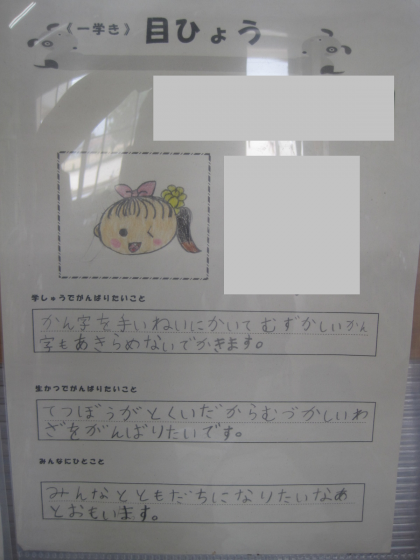 (一学き) 目ひょう
学しゅうでがんばりたいこと
かん字を手いねいにかいてむずかしいかん
字もあきらめないでかきます。
生かつでがんばりたいこと
てつぼうがとくいだからむづかしいわ
ざをがんばりたいです。
みんなにひとこと
みんなとともだちになりたいなあ
とおもいます。